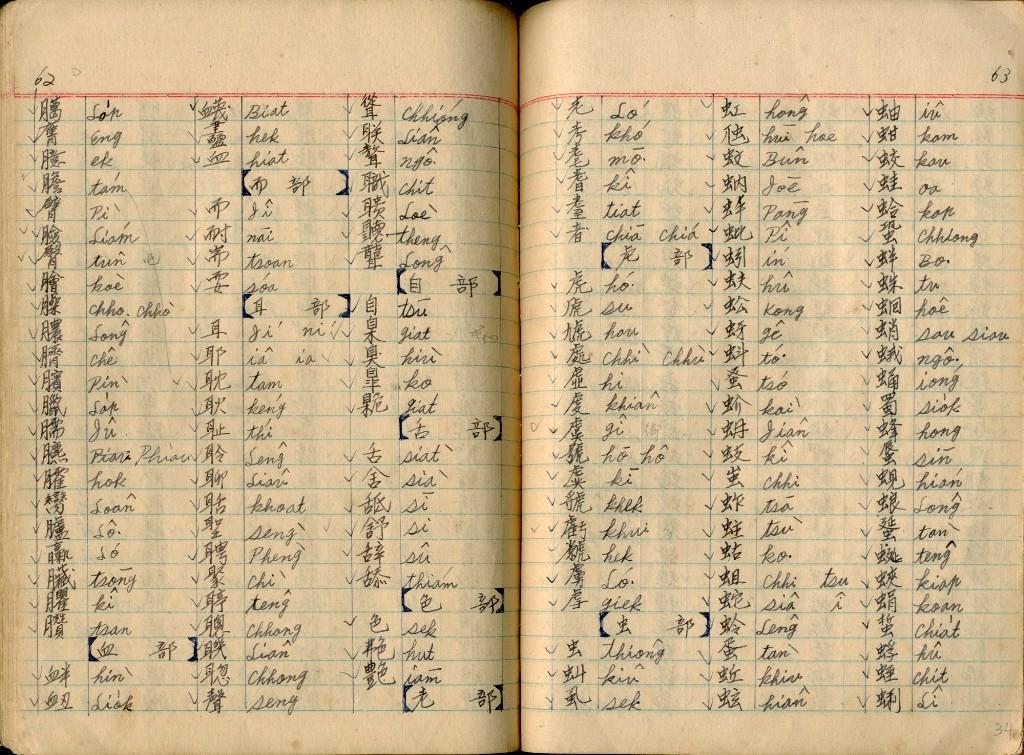 62
臈 La̍p
膺 Eng
臆 ek
膽 tám
臂 Pì
臉 Liám
臀 tûn
膾 koè
臊 chho. chhò
膿 Lông
臍 chê
臏 Pìn
臘 La̍p
臑 Jû
臕 Piau Phiau
臛 hok
臠 Loân
臚 Lô.
臝 Ló
臟 tsōng
臞 kî
臢 tsan
【血 部】
衅 hìn
衄 Lio̍k
衊 Biat
衋 hek
血 hiat
【而 部】
而 Jî
耐 nāi
耑 tsoan
耍 sóa
【耳 部】
耳 Jí ní
耶 iâ ia
耽 tam
耿 kéng
耻 thí
聆 Lêng
聊 Liâu
聒 khoat
聖 sèng
聘 Phèng
聚 chī
聤 têng
聰 chhong
聨 Liân
聦 chhong
聲 seng
聳 chhióng
聯 Liân
聱 ngô.
職 chit
聵 Loē
聽 theng
聾 Lông
【自 部】
自 tsū
臬 giat
臭 hiù
臯 ko
臲 giat
【舌 部】
舌 siat
舍 sià
舐 sī
舒 si
辞 sû
舔 thiám
【色 部】
色 sek
艴 hut
艷 iām
【老 部】
63
老 Ló
考 khó
耄 mō.
耆 kî
耋 tiat
者 chiá chiá
【虍 部】
虎 hó.
虒 su
虓 hau
處 chhì chhù
虛 hi
虔 khiân
虞 gî
號 hō hô
虡 kī
虩 khek
虧 khui
虩 hek
虜 Ló.
虐 giek
【虫 部】
虫 thiông
虯 kiû
虱 sek
虹 hông
虺 hui hoe
蚊 Bûn
蚋 Joē
蚌 Pāng
蚍 Pî
蚓 ín
蚨 hû
蚣 kong
蚜 gê
蚪 tó.
蚤 tsó
蚧 kài
蚦 Jiân
蚑 kî
蚩 chhi
蚱 tsà
蛀 tsù
蛄 ko.
蛆 chhi tsu
蛇 siâ î
蛉 Lêng
蛋 tàn
蚯 khiu
蚿 hiân
蚰 iû
蚶 kam
蛟 kau
蛙 oa
蛤 kap
蛩 chhiong
蛑 Bô.
蛛 tu
蛔 hoê
蛸 sau siau
蛾 ngô.
蛹 ióng
蜀 sio̍k
蜂 hong
蜃 sīn
蜆 hián
蜋 Lông
蜑 tàn
蜓 têng
蛺 kiap
蜎 koan
蜇 chiat
蜉 hû
蛭 chit
蜊 Lî
34